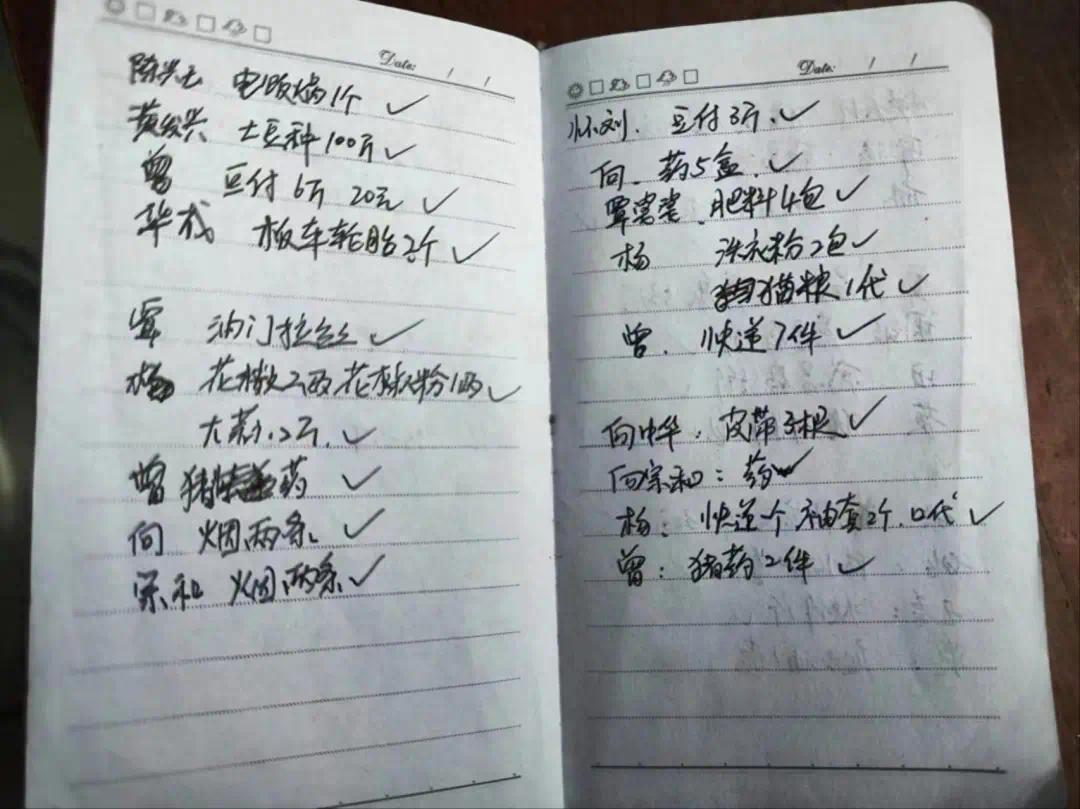 Date: / /
陈兴七 电饭锅1个 ✓
黄发兴 土豆种100斤 ✓
曾 豆付6斤 20元 ✓
华成 板车轮胎2个 ✓
覃 油门拉丝 ✓
杨 花椒2两花椒粉1两 ✓
大 2斤. ✓
曾 猪药 ✓
向 烟两条 ✓
宗和 烟两条 ✓
Date: / /
怀刘. 豆付3斤. ✓
向. 药5盒. ✓
覃 肥料4包 ✓
杨 洗衣粉2包 ✓
猫粮1代 ✓
曾. 快递7件 ✓
向中华. 皮带3根 ✓
向宗和: 药 ✓
杨: 快递一个 袖套2个. 口代 ✓
曾: 猪药2件 ✓